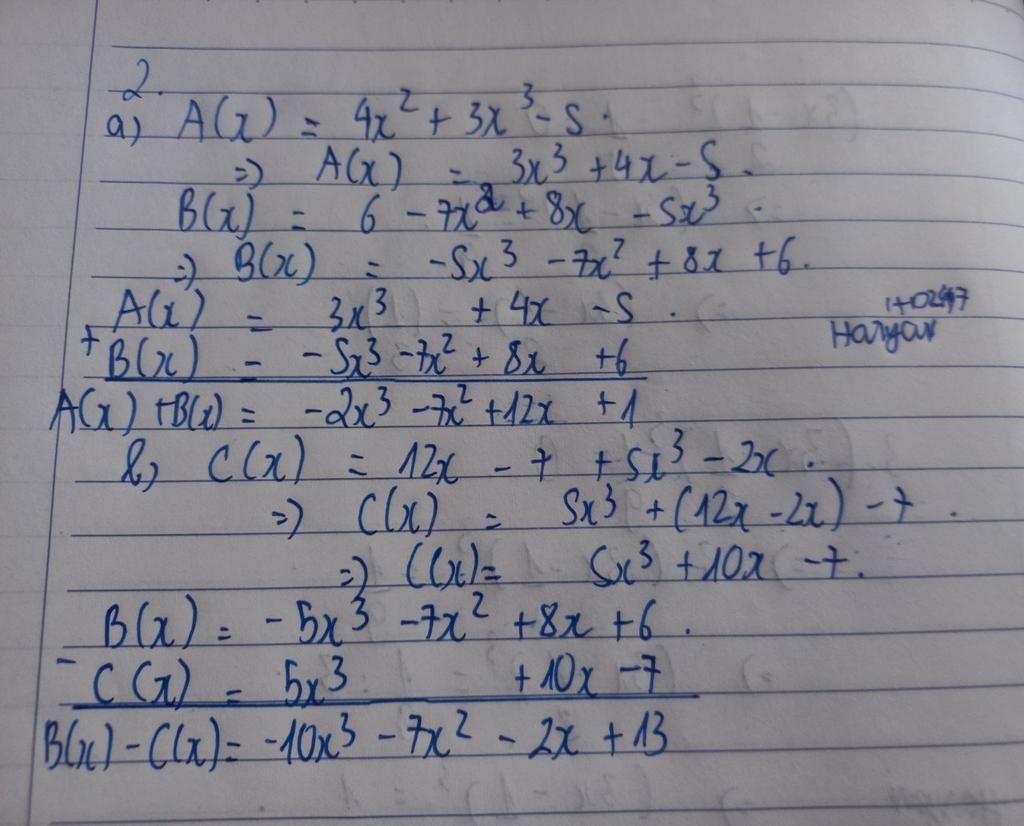 2.
a) A(x) = 4x² + 3x³ - 5.
=) A(x) = 3x³ + 4x - 5.
B(x) = 6 - 7x² + 8x - 5x³.
=) B(x) = -5x³ - 7x² + 8x + 6.
A(x) = 3x³ + 4x - 5.
+ B(x) = -5x³ - 7x² + 8x + 6
A(x) + B(x) = -2x³ - 7x² + 12x + 1
b) C(x) = 12x - 7 + 5x³ - 2x.
=) C(x) = 5x³ + (12x - 2x) - 7.
=) C(x) = 5x³ + 10x - 7.
B(x) = -5x³ - 7x² + 8x + 6.
- C(x) = 5x³ + 10x - 7
B(x) - C(x) = -10x³ - 7x² - 2x + 13